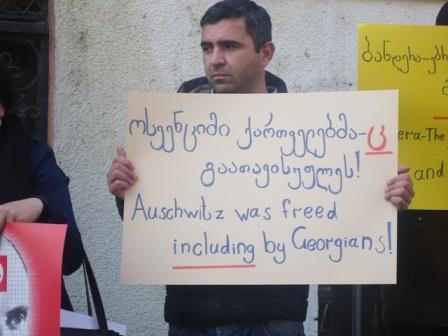 ოსვენციმი ქართველებმა-ც
გაათავისუფლეს!
Auschwitz was freed
including by Georgians!
ბანდერა-
era-The
and